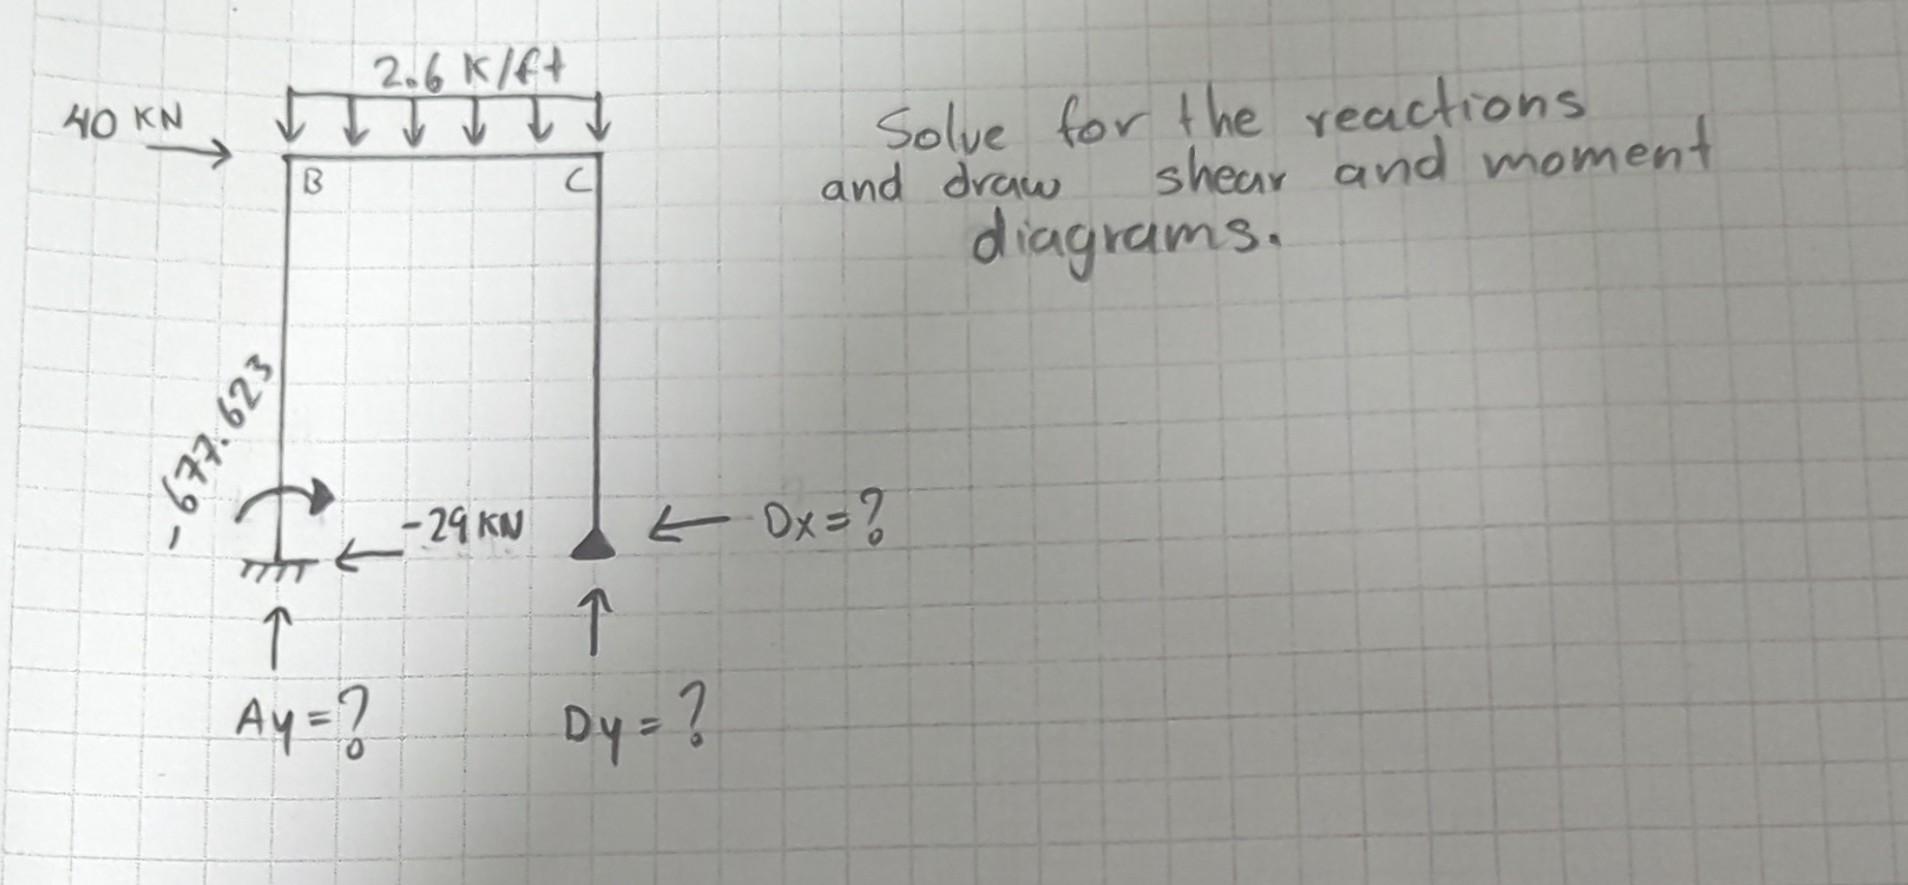 2.6 K/ft
40 KN
Solve for the reactions
and draw shear and moment
diagrams.
B
C
-677.623
-29 KN
Dx=?
Ay=?
Dy=?